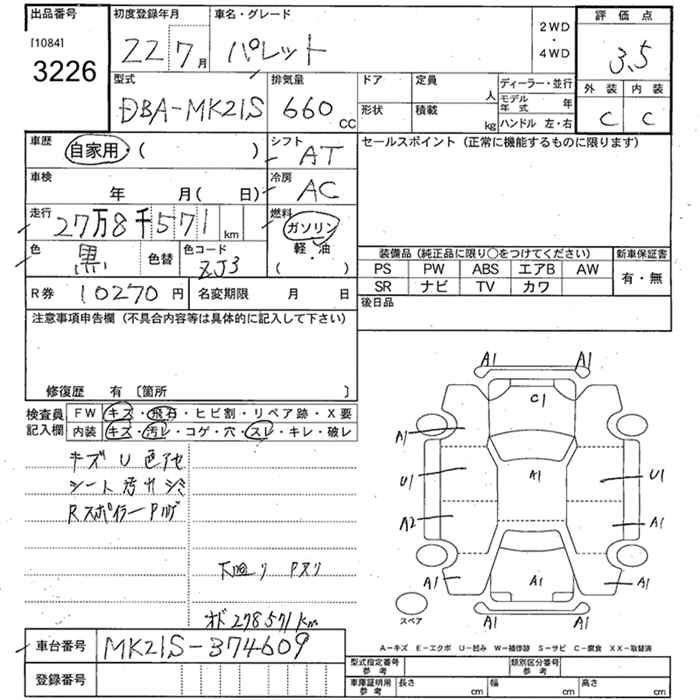 出品番号
[1084]
3226
初度登録年月
22 7月
車名・グレード
パレット
2WD
・
4WD
評価点
3.5
外装 内装
C C
型式
DBA-MK21S
排気量
660 CC
ドア
定員 人
形状
積載 kg
ディーラー・並行
モデル年式 年
ハンドル 左・右
車歴
自家用・( )
シフト
AT
車検
年 月( 日)
冷房
AC
走行
27万8千571 km
燃料
ガソリン
軽・油
( )
色
黒
色替
色コード
ZJ3
R券 10270円
名変期限 月 日
セールスポイント (正常に機能するものに限ります)
装備品 (純正品に限り○をつけてください)
PS PW ABS エアB AW
SR ナビ TV カワ
新車保証書
有・無
後日品
注意事項申告欄 (不具合内容等は具体的に記入して下さい)
修復歴 有 〔箇所 〕
検査員記入欄
FW キズ・飛石・ヒビ割・リペア跡・X要
内装 キズ・汚レ・コゲ・穴・スレ・キレ・破レ
キズ U 色アセ
シート汚レシミ
Rスポイラー Pハゲ
下回り Pスリ
オド 278571km
A1 A1
C1
A1
U1 A1 U1
A2 A1
A1 A1 A1
A1 A1
スペア
A－キズ E－エクボ U－凹み W－補修跡 S－サビ C－腐食 XX－取替済
車台番号 MK21S-374609
登録番号
型式指定番号 参考
類別区分番号 参考
車庫証明用 参考
長さ cm 幅 cm 高さ cm